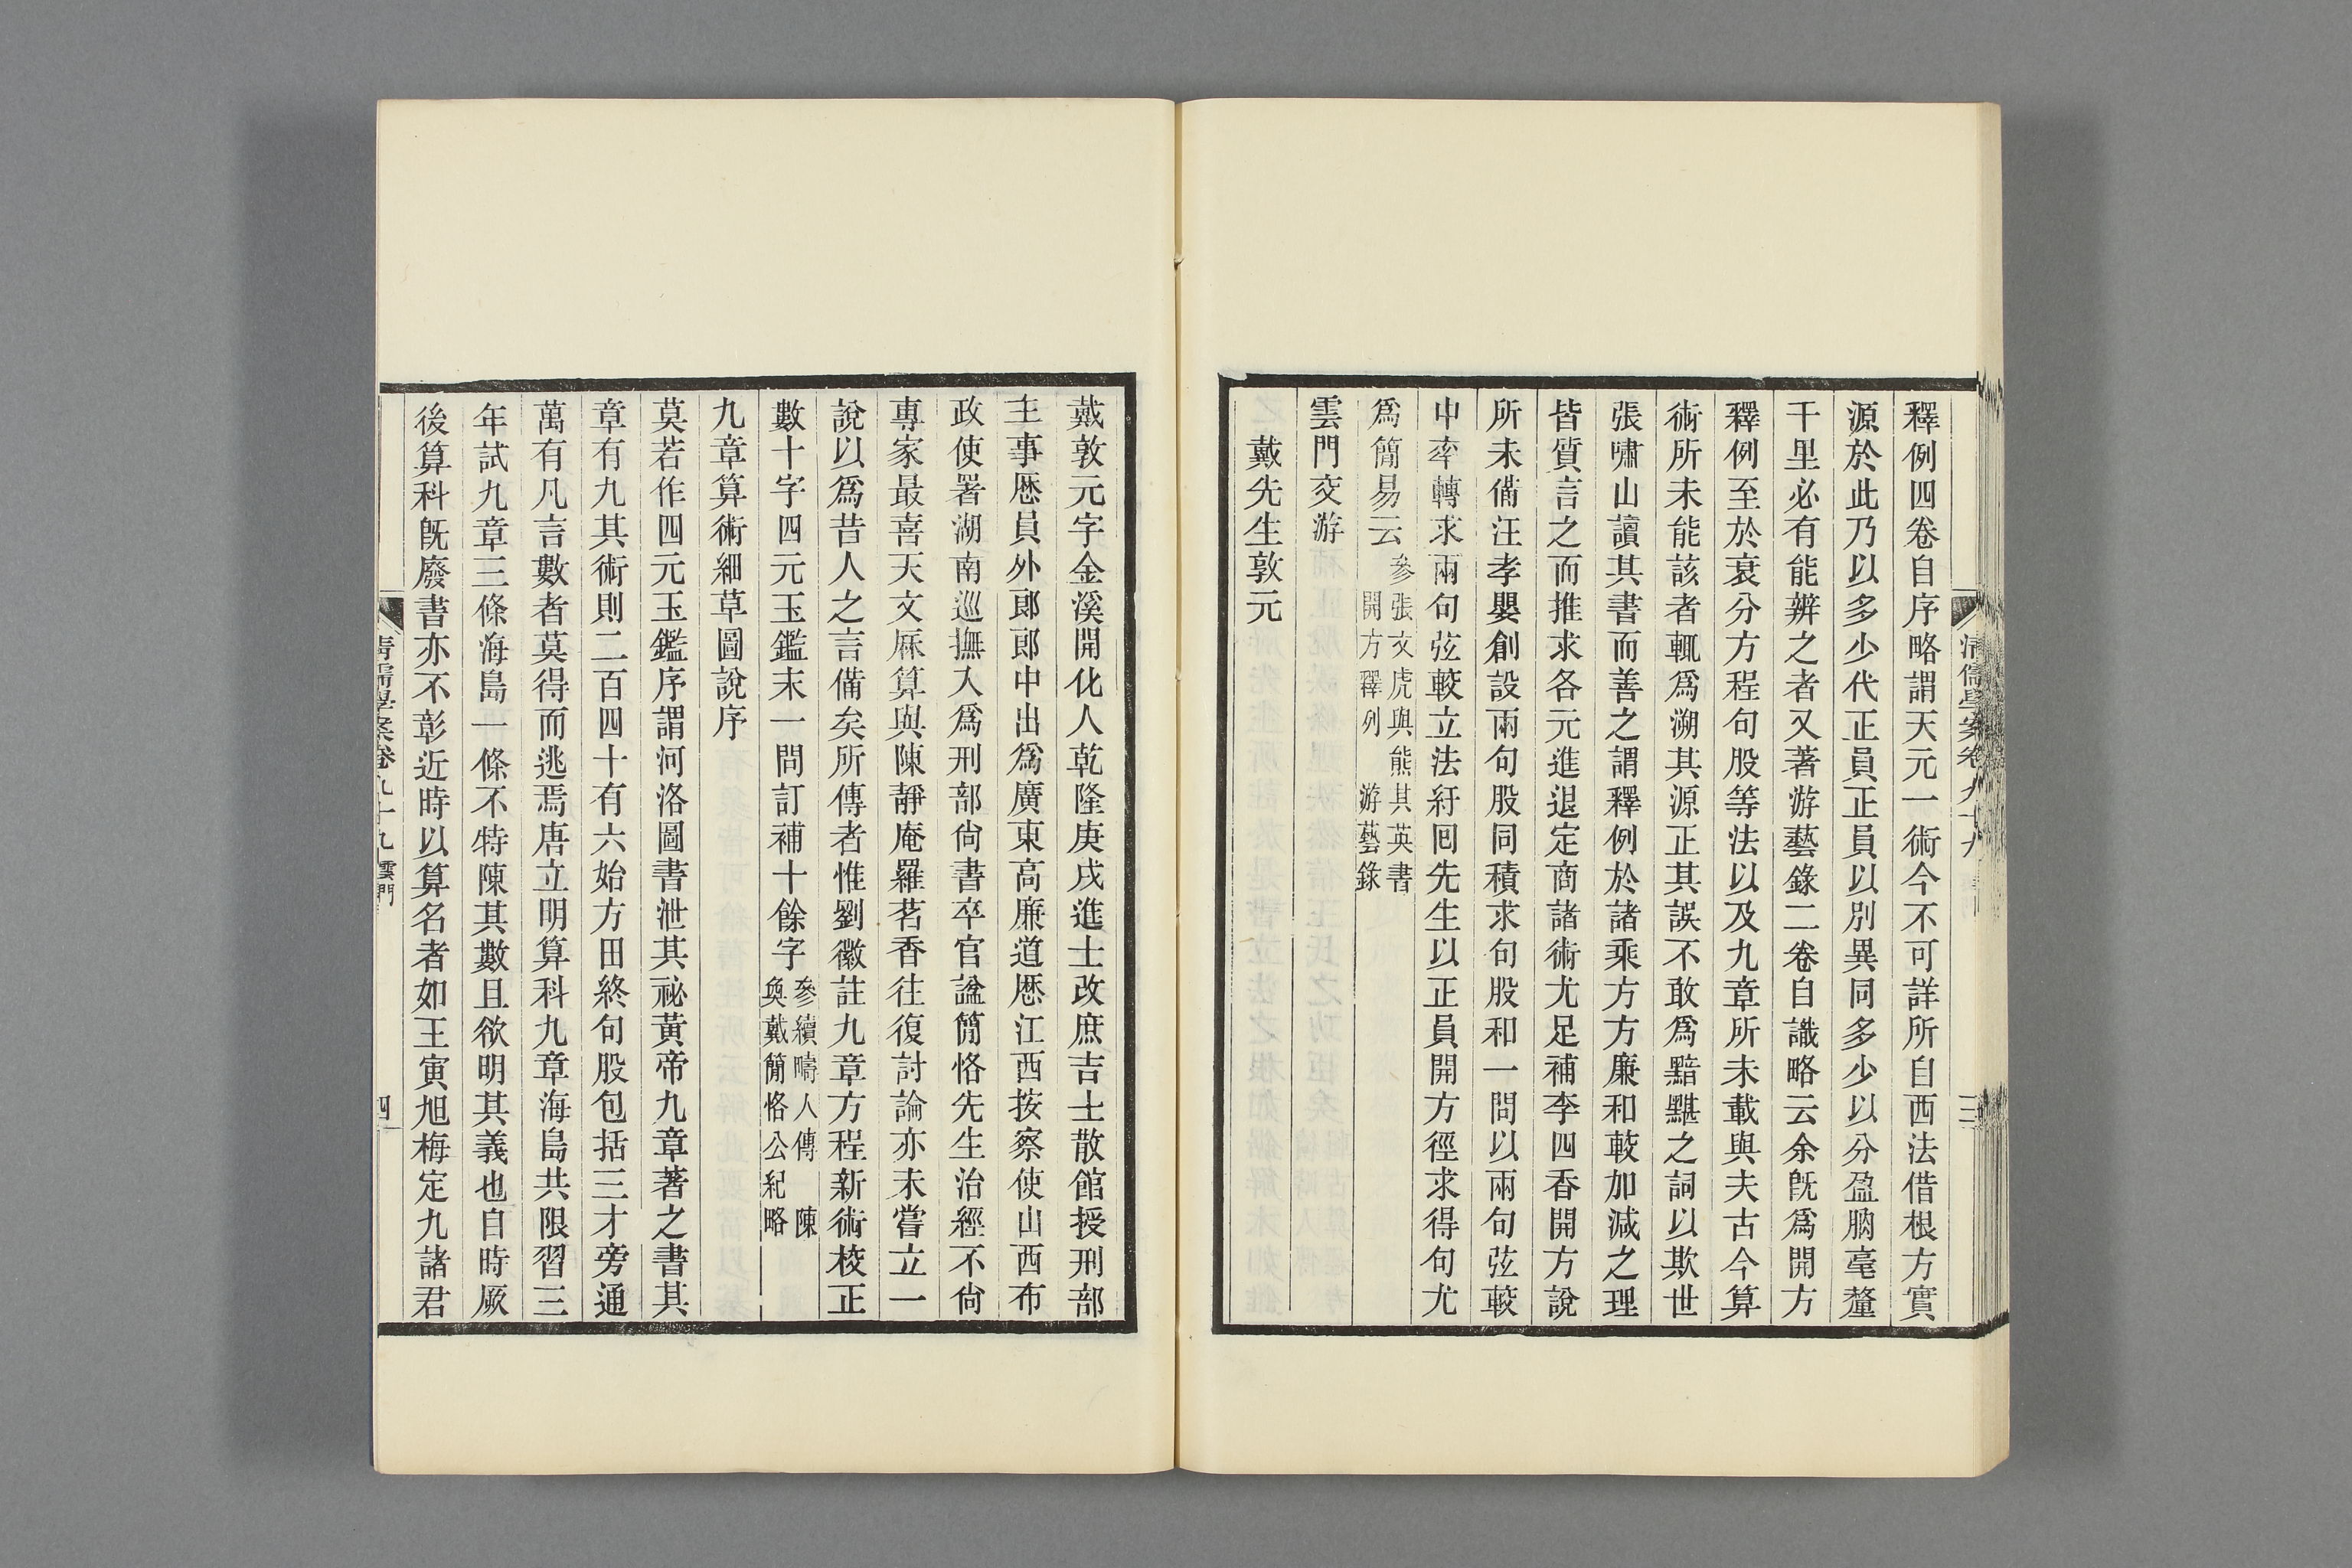 清儒學案卷九十九
三
釋例四卷自序略謂天元一術今不可詳所自西法借根方實
源於此乃以多少代正員正員以別異同多少以分盈朒毫釐
千里必有能辨之者又著游藝錄二卷自識略云余旣爲開方
釋例至於衰分方程句股等法以及九章所未載與夫古今算
術所未能該者輒爲溯其源正其誤不敢爲黯黮之詞以欺世
張嘯山讀其書而善之謂釋例於諸乘方方廉和較加減之理
皆質言之而推求各元進退定商諸術尤足補李四香開方說
所未備汪孝嬰創設兩句股同積求句股和一問以兩句弦較
中率轉求兩句弦較立法紆囘先生以正員開方徑求得句尤
爲簡易云參張文虎與熊其英書
開方釋例 游藝錄
雲門交游
戴先生敦元
戴敦元字金溪開化人乾隆庚戌進士改庶吉士散館授刑部
主事厯員外郞郞中出爲廣東高廉道厯江西按察使山西布
政使署湖南巡撫入爲刑部尙書卒官諡簡恪先生治經不尙
專家最喜天文厤算與陳靜庵羅茗香往復討論亦未嘗立一
說以爲昔人之言備矣所傳者惟劉徽註九章方程新術校正
數十字四元玉鑑末一問訂補十餘字參續疇人傳 陳
奐戴簡恪公紀略
九章算術細草圖說序
莫若作四元玉鑑序謂河洛圖書泄其祕黃帝九章著之書其
章有九其術則二百四十有六始方田終句股包括三才旁通
萬有凡言數者莫得而逃焉唐立明算科九章海島共限習三
年試九章三條海島一條不特陳其數且欲明其義也自時厥
後算科旣廢書亦不彰近時以算名者如王寅旭梅定九諸君
清儒學案卷九十九 雲門
四